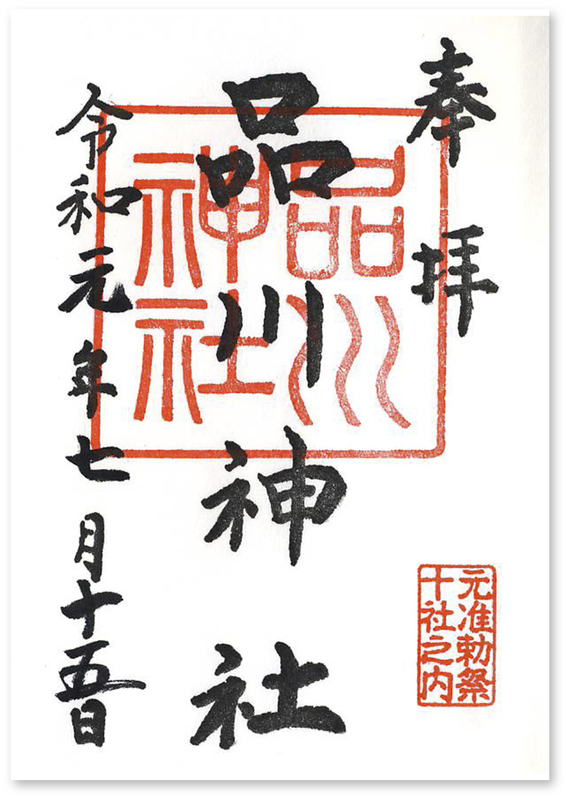 奉拝
品川神社
令和元年七月十五日
品川
神社
元准勅祭
十社之内